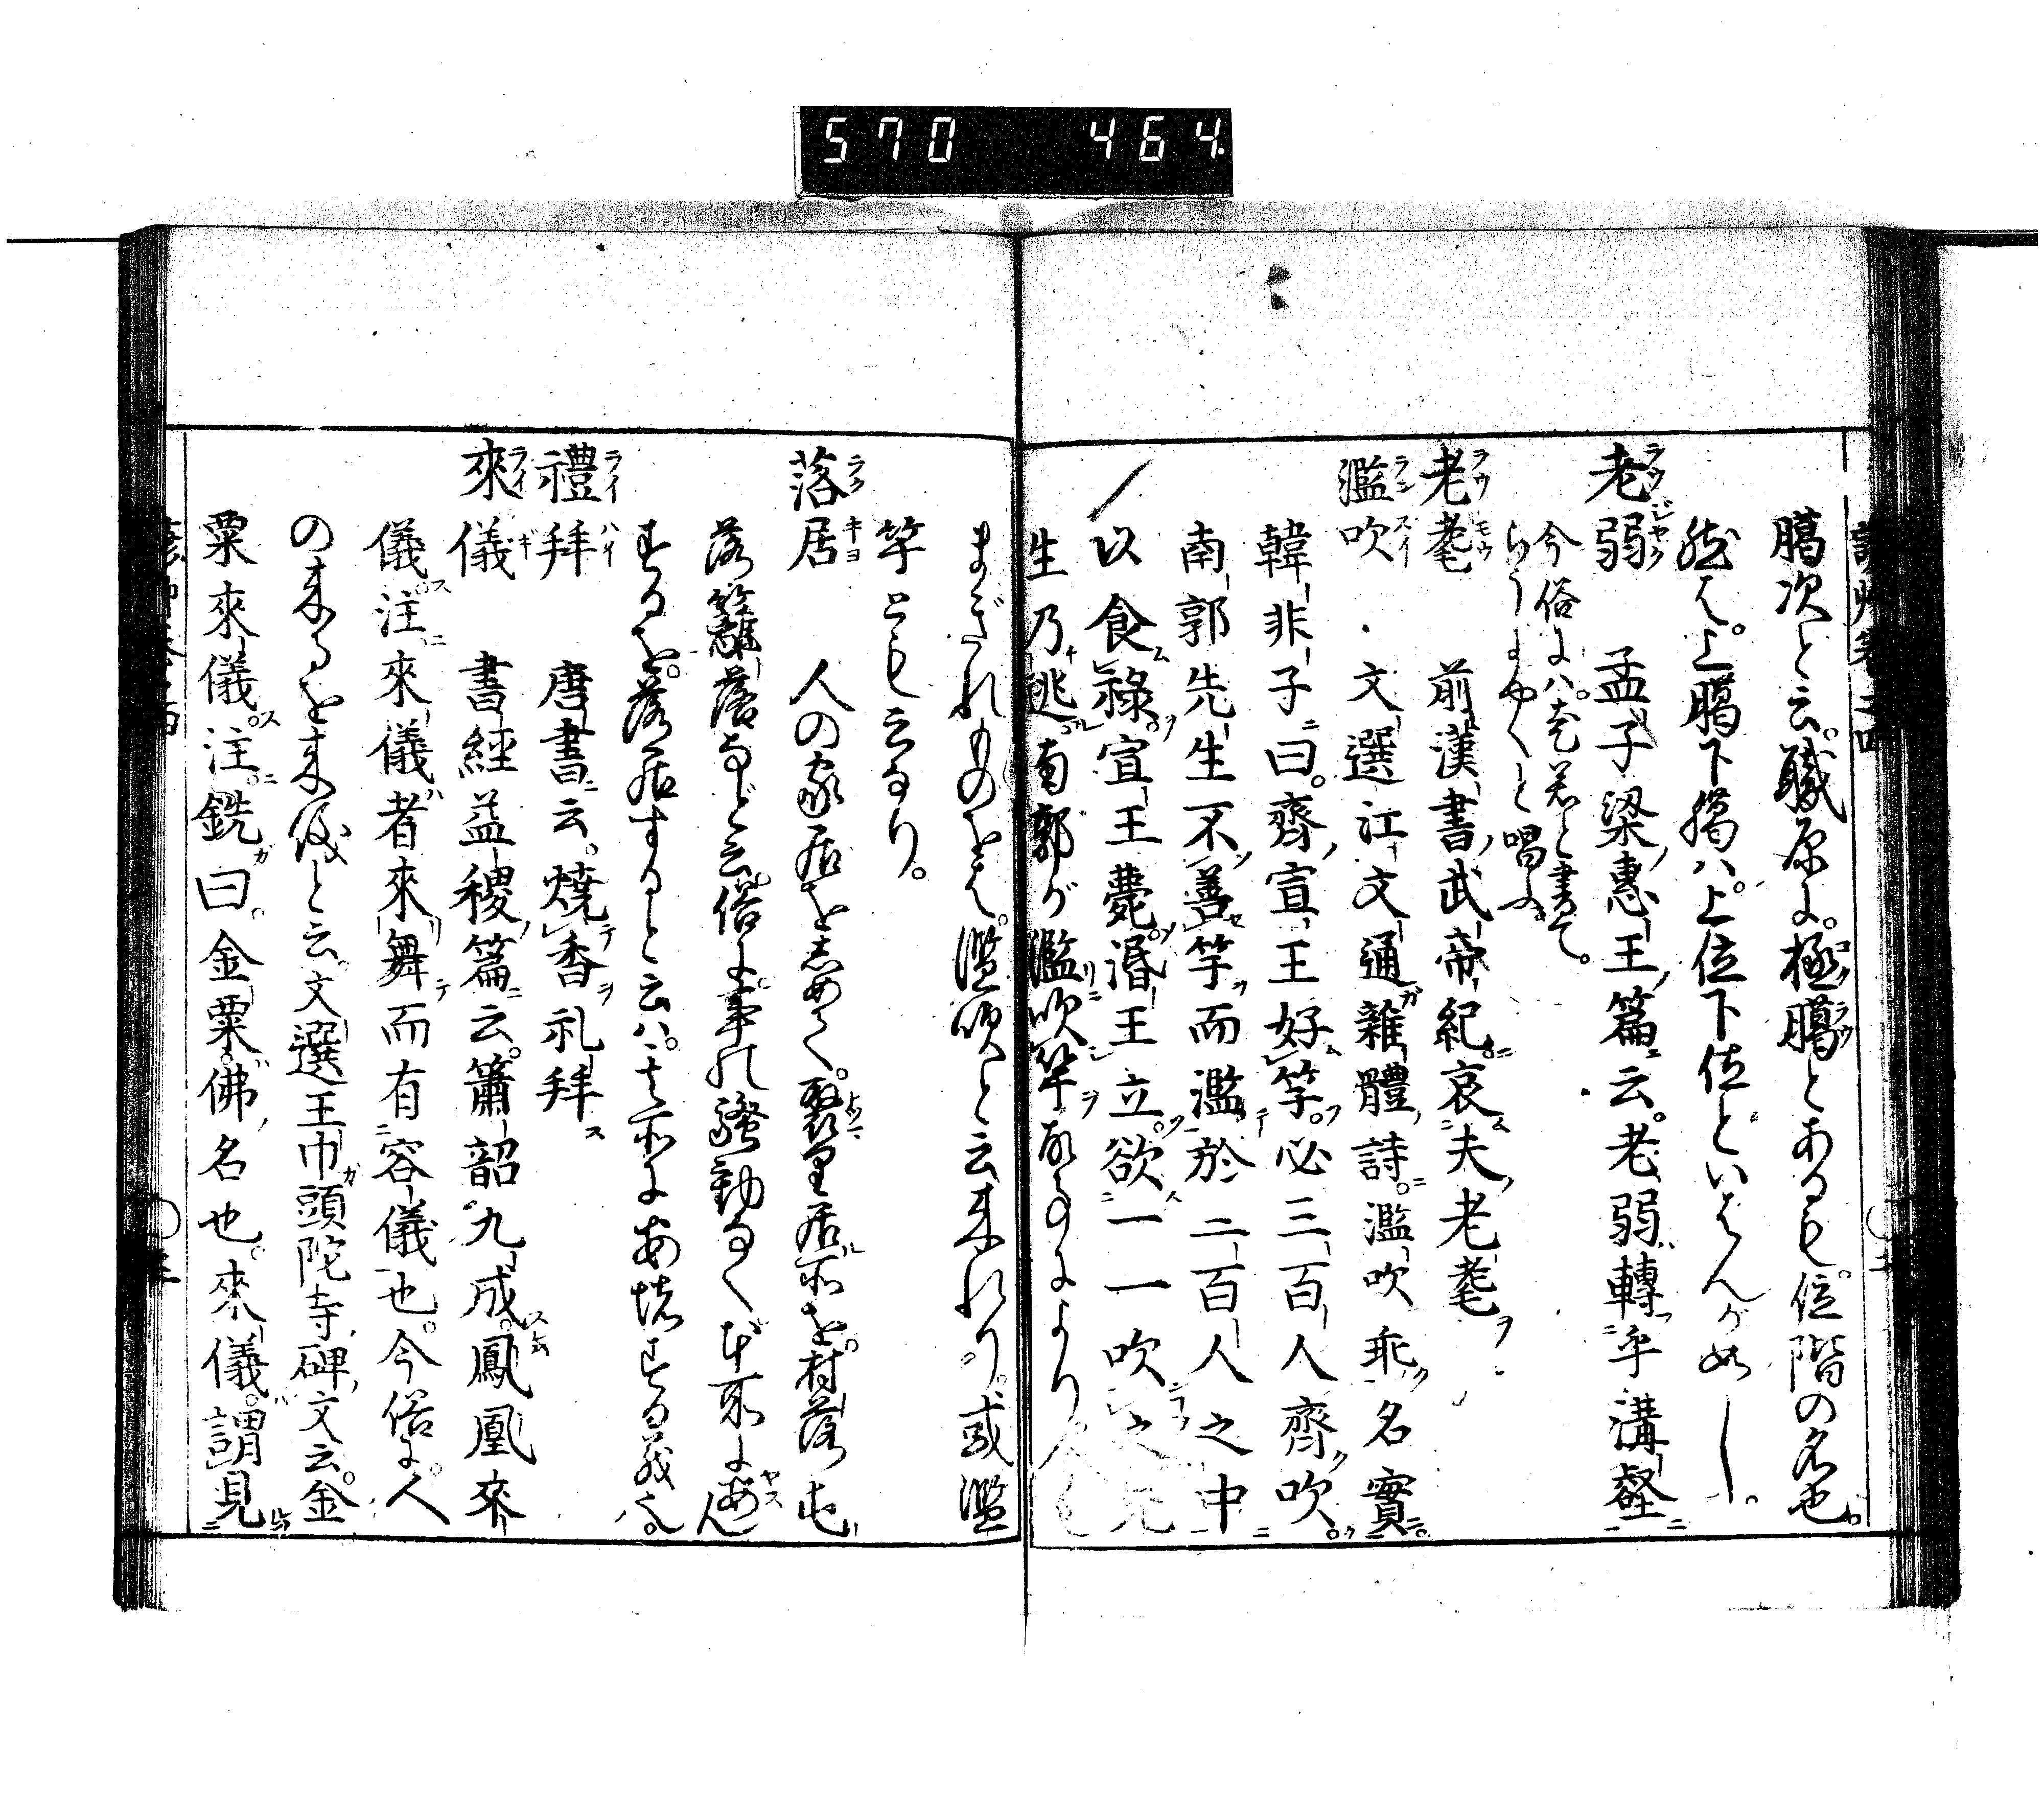 570 464
臈次と云。職原に。極臈とあるも。位階の名也。
然ば。上臈下臈ハ。上位下位といはんが如し。
老弱 孟子梁惠王篇云。老弱轉乎溝壑
今俗にハ。老若と書て。
らうにやくと唱ふ
老耄 前漢書武帝紀。哀夫老耄
濫吹 文選江文通雜體詩。濫吹乖名實。
韓非子曰。齊宣王好竽。必三百人齊吹。
南郭先生不善竽而濫於三百人之中
以食祿宣王薨湣王立。欲一一吹之先
生乃逃。南郭が濫吹竽故事により人も
まぎれものをば。濫吹と云来れり。或濫
竽とも云なり。
落居 人の家居をしめて。聚里居所を。村落屯
落籬落など云。俗に。事の騒動なく本所に安ん
ずるを。落居すると云ハ。其所に安堵する義也。
禮拜 唐書云。燒香礼拜
來儀 書經益稷篇云。簫韶九成。鳳凰來
儀注來儀者來舞而有容儀也。今俗に。人
の来るを来儀と云。文選王巾頭陀寺碑文云。金
粟來儀注。銑曰。金粟。佛名也。來儀。謂見